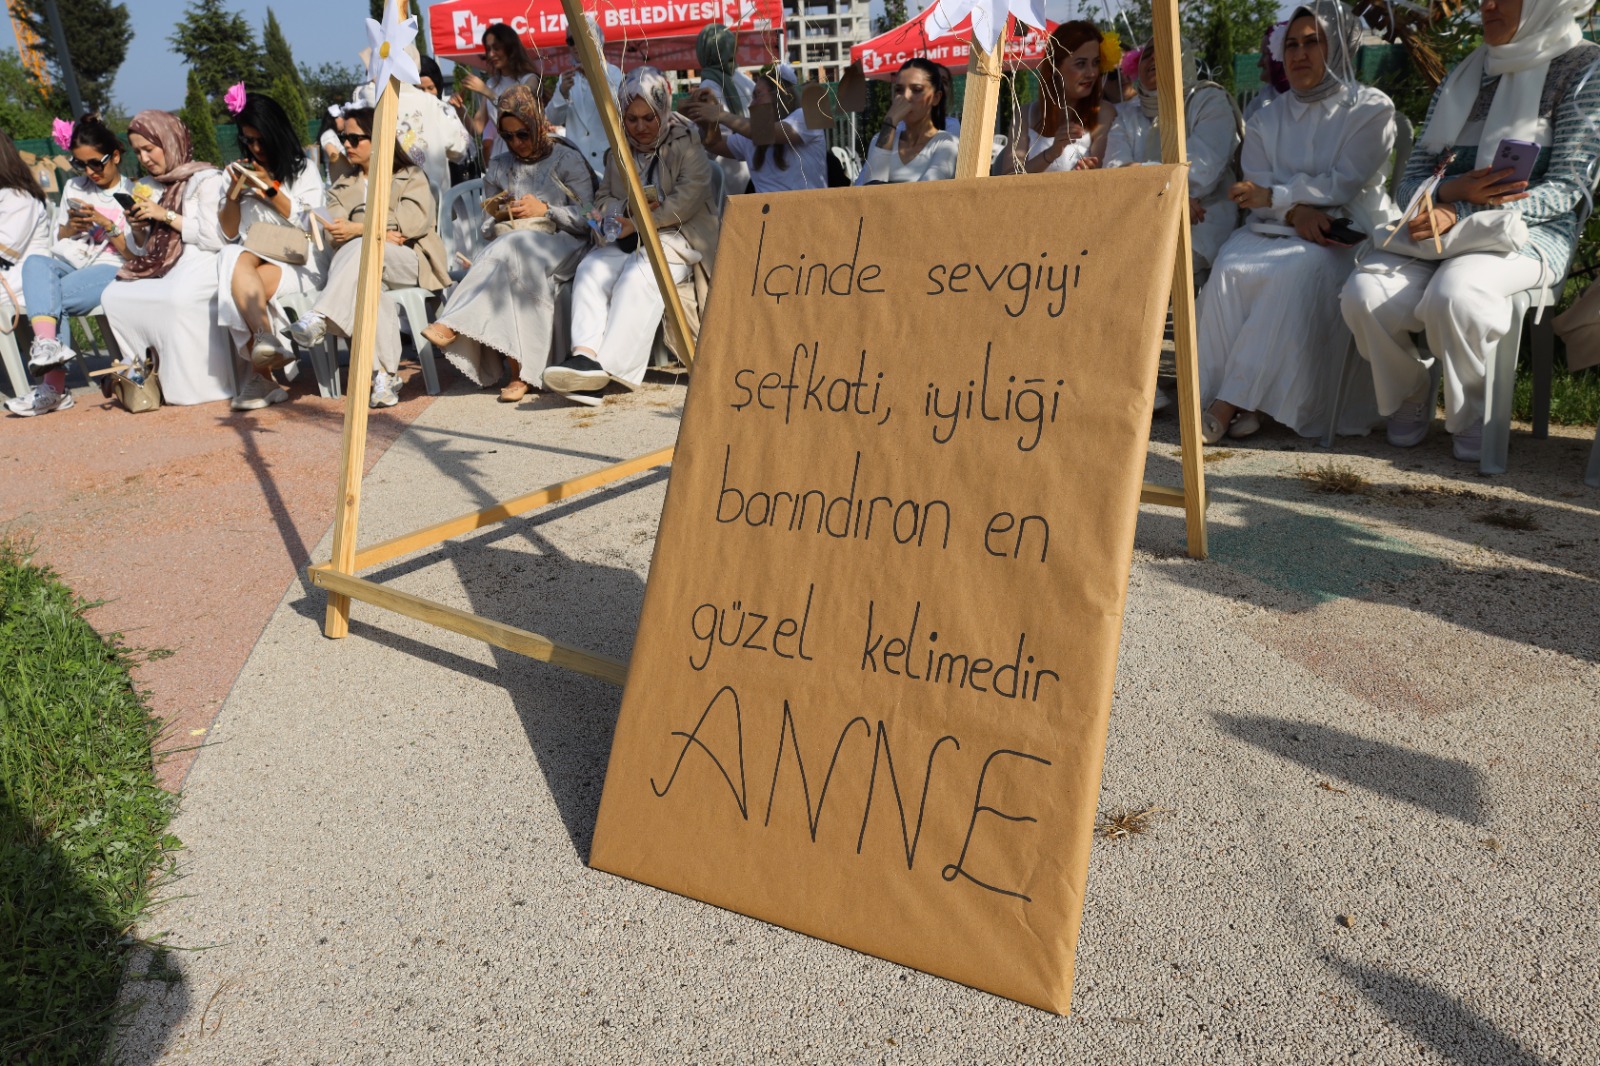 T.C. İZMİT BELEDİYESİ
T.C. İZMİT
İçinde sevgiyi
şefkati, iyiliği
barındıran en
güzel kelimedir
ANNE